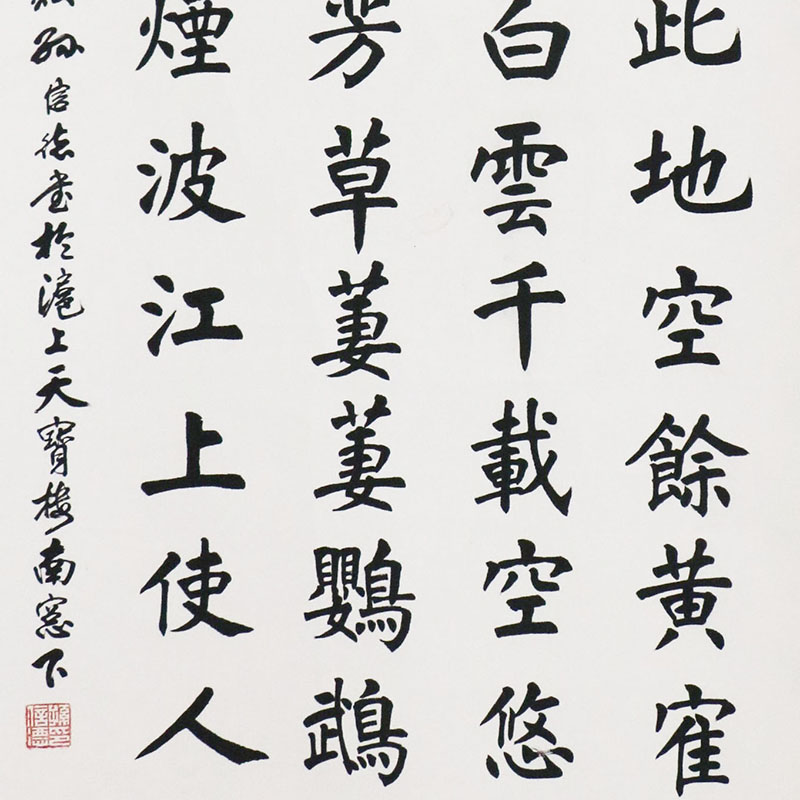 此地空餘黃寉
白雲千載空悠
芳草萋萋鸚鵡
煙波江上使人
孫信德書於滬上天寶樓南窓下
孫印信德